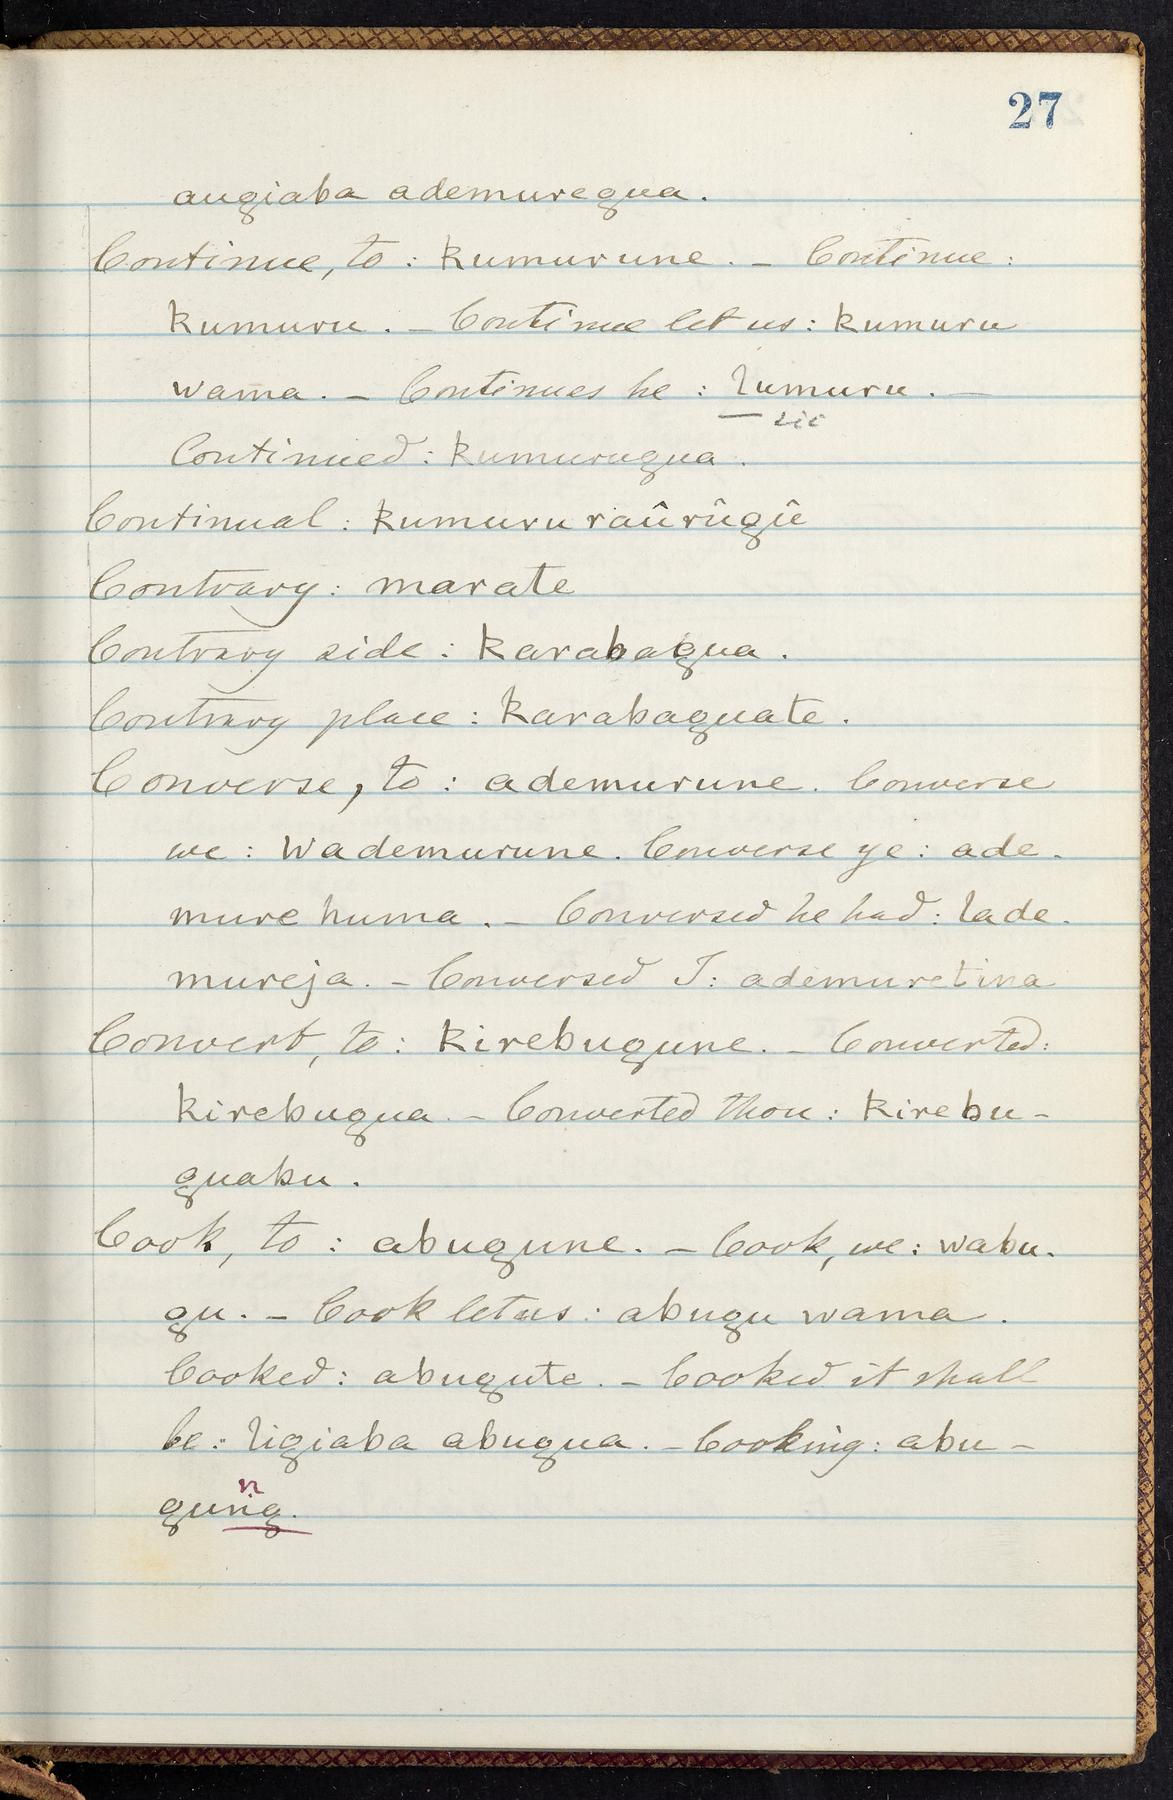 27
augiaba ademuregua.
Continue, to : kumurune. – Continue :
kumuru. – Continue let us : kumuru
wama. – Continues he : lumuru. –
sic
Continued : kumurugua.
Continual : kumuru raûrûgûe
Contrary : marate
Contrary side : karabagua.
Contrary place : karabaguate.
Converse, to : ademurune. Converse
we : Wademurune. Converse ye : ade-
mure huma. – Conversed he had : lade-
mureja. – Conversed I : ademuretina
Convert, to : kirebugune. – Converted :
kirebugua – Converted thou : kirebu-
guabu.
Cook, to : abugune. – Cook, we : wabu-
gu. – Cook let us : abugu wama.
Cooked : abugute. – Cooked it shall
be : ligiaba abugua. – Cooking : abu-
n
guñg.